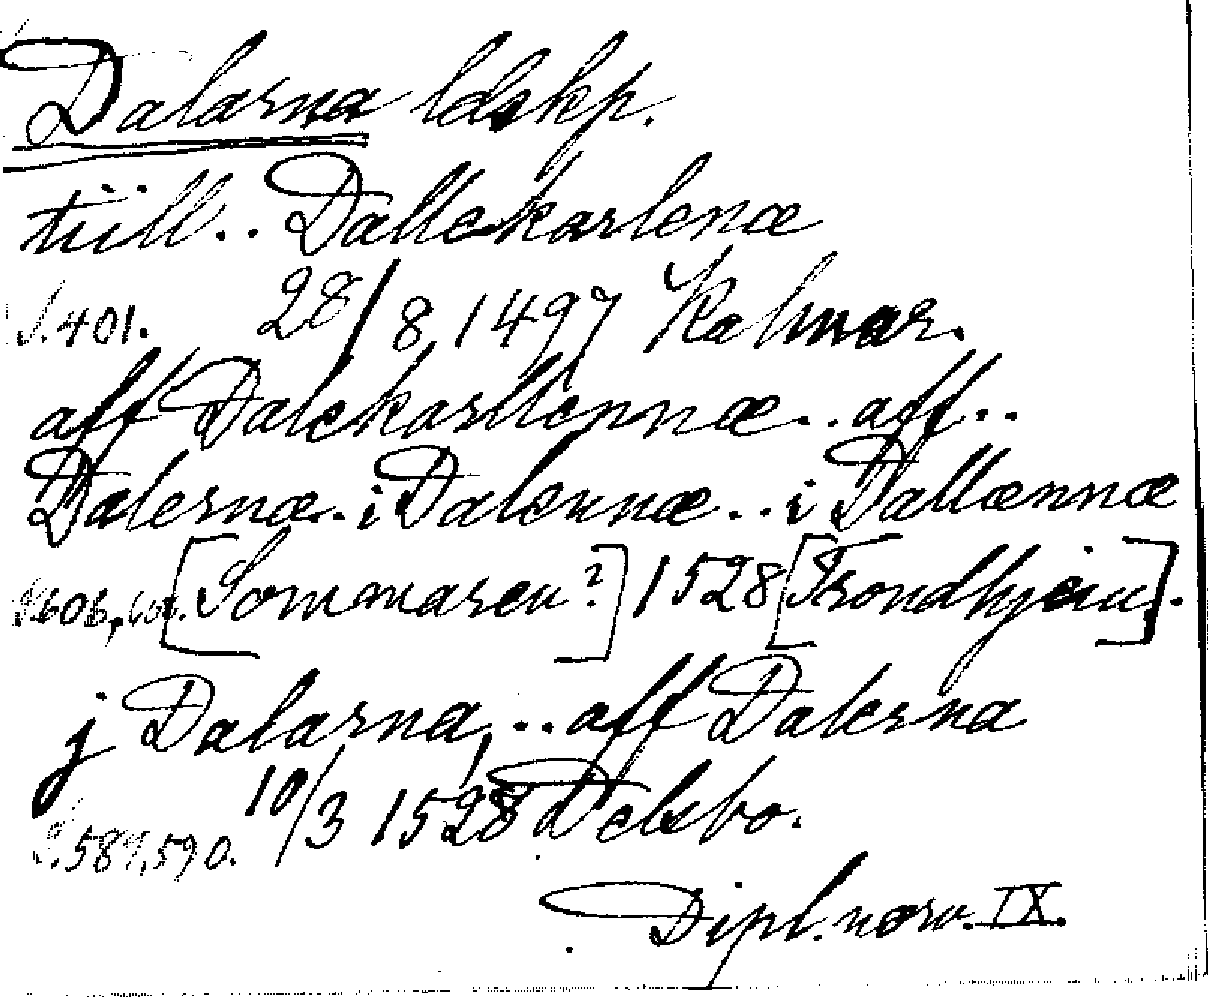 Dalarna ldskp.
tiill.. Dallekarlenæ
S.401. 28/8 1497 Kalmar.
aff Dalekarllennæ.. aff..
Dalernæ.. i Dalennæ.. i Dallænnæ
S.606, [Sommaren?] 1528 [Trondhjem].
j Dalarna, .. aff Dalerna
S.589,590. 10/3 1528 Delsbo.
Dipl. norv. IX.